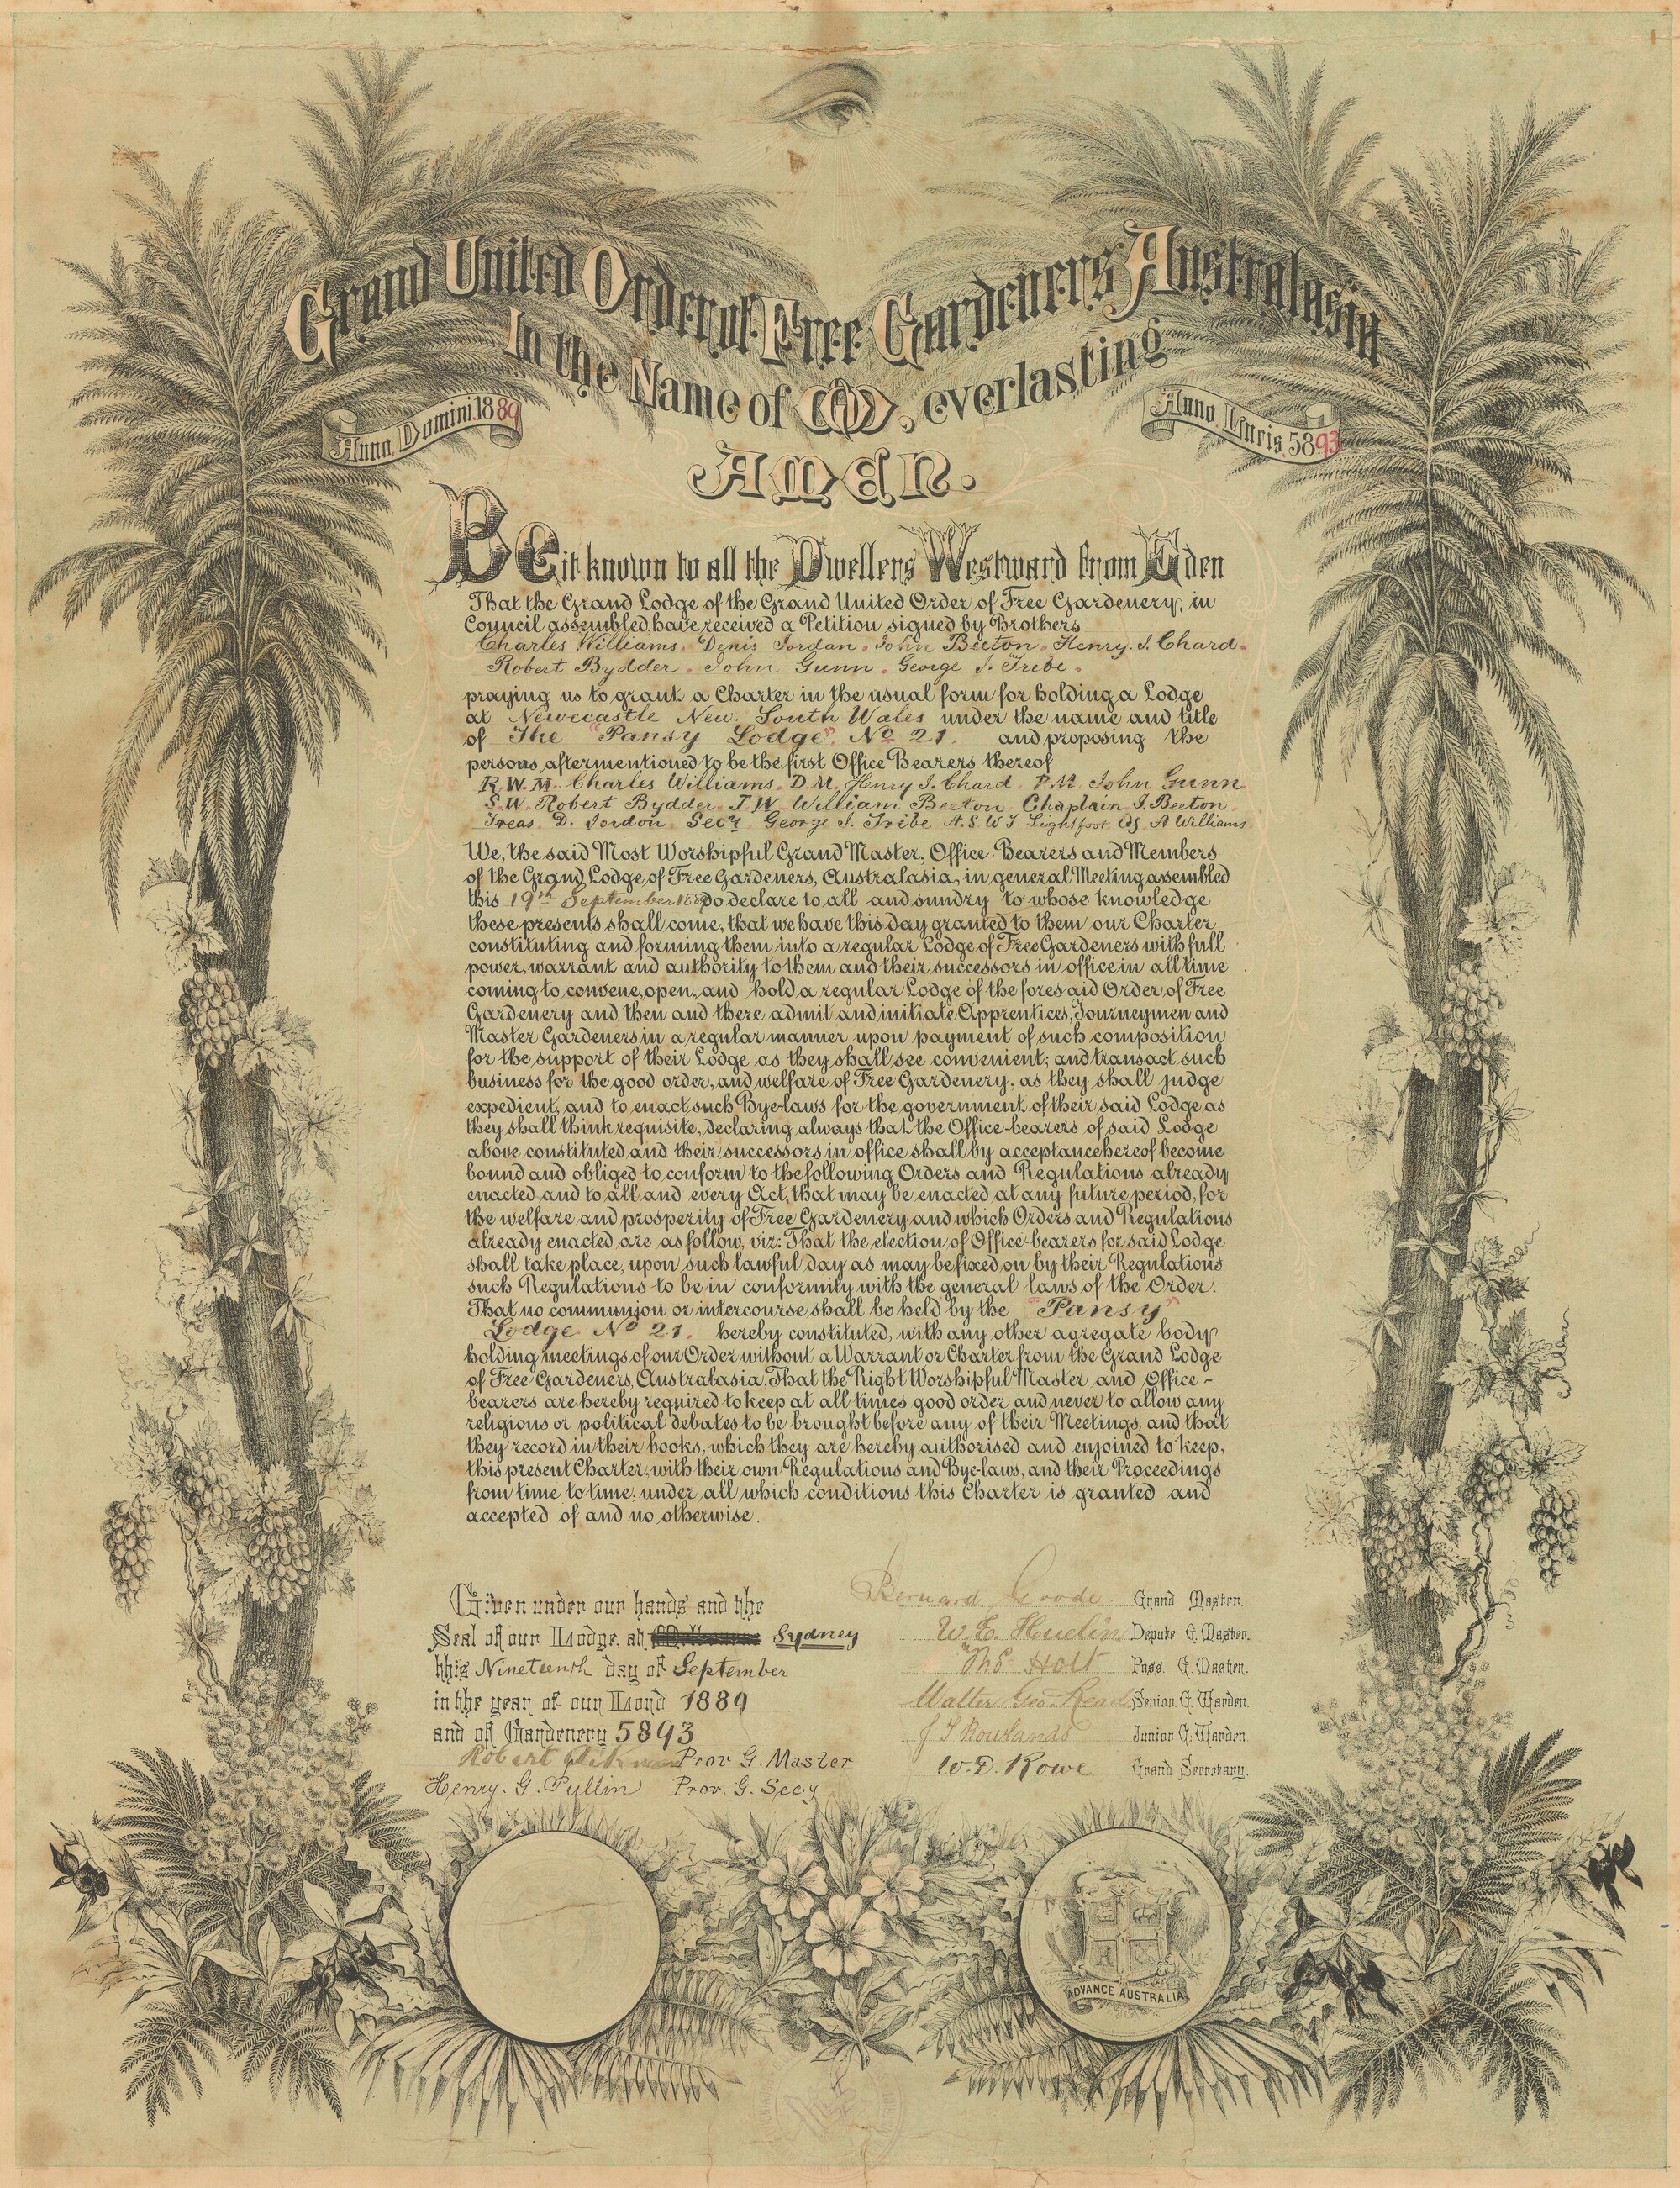 Grand United Order of Free Gardeners Australasia
In the Name of GOD, everlasting
Anno Domini 1889
Anno Lucis 5893
AMEN.
BE it known to all the Dwellers Westward from Eden
That the Grand Lodge of the Grand United Order of Free Gardenery, in
Council assembled, have received a Petition signed by Brothers
Charles Williams. Denis Jordan. John Beeton. Henry. J. Chard.
Robert Bydder. John Gunn. George J. Tribe.
praying us to grant a Charter in the usual form for holding a Lodge
at Newcastle New. South Wales under the name and title
of The "Pansy Lodge". No 21. and proposing the
persons aftermentioned to be the first Office Bearers thereof
R.W.M. Charles Williams. D.M. Henry J. Chard. P.M. John Gunn
S.W. Robert Bydder. J.W. William Beeton. Chaplain J. Beeton.
Treas. D. Jordon. Secy. George J. Tribe A.S. W J Lightfoot OS A Williams
We, the said Most Worshipful Grand Master, Office-Bearers and Members
of the Grand Lodge of Free Gardeners, Australasia, in general Meeting assembled
this 19th September 1889 Do declare to all and sundry to whose knowledge
these presents shall come, that we have this day granted to them our Charter
constituting and forming them into a regular Lodge of Free Gardeners with full
power, warrant and authority to them and their successors in office in all time
coming to convene, open, and hold a regular Lodge of the foresaid Order of Free
Gardenery and then and there admit and initiate Apprentices, Journeymen and
Master Gardeners in a regular manner upon payment of such composition
for the support of their Lodge as they shall see convenient; and transact such
business for the good order, and welfare of Free Gardenery, as they shall judge
expedient, and to enact such Bye-laws for the government of their said Lodge as
they shall think requisite, declaring always that the Office-bearers of said Lodge
above constituted and their successors in office shall by acceptance hereof become
bound and obliged to conform to the following Orders and Regulations already
enacted and to all and every Act, that may be enacted at any future period, for
the welfare and prosperity of Free Gardenery and which Orders and Regulations
already enacted are as follow, viz: That the election of Office-bearers for said Lodge
shall take place, upon such lawful day as may be fixed on by their Regulations
such Regulations to be in conformity with the general laws of the Order.
That no communion or intercourse shall be held by the "Pansy"
Lodge No 21. hereby constituted, with any other agregate body
holding meetings of our Order without a Warrant or Charter from the Grand Lodge
of Free Gardeners, Australasia, That the Right Worshipful Master and Office-
bearers are hereby required to keep at all times good order and never to allow any
religious or political debates to be brought before any of their Meetings, and that
they record in their books, which they are hereby authorised and enjoined to keep,
this present Charter, with their own Regulations and Bye-laws, and their Proceedings
from time to time, under all which conditions this Charter is granted and
accepted of and no otherwise.
Given under our hands and the
Seal of our Lodge, at Melbourne Sydney
this Nineteenth day of September
in the year of our Lord 1889
and of Gardenery 5893
Robert Aikman Prov G. Master
Henry. G. Pullin Prov. G. Secy
Bernard Goode. Grand Master.
W. E. Huelin Depute G. Master.
Thos Holt Pass. G. Master.
Walter Geo. Read Senior. G. Warden.
J T Rowlands Junior G. Warden
W. D. Rowe Grand Secretary.
ADVANCE AUSTRALIA